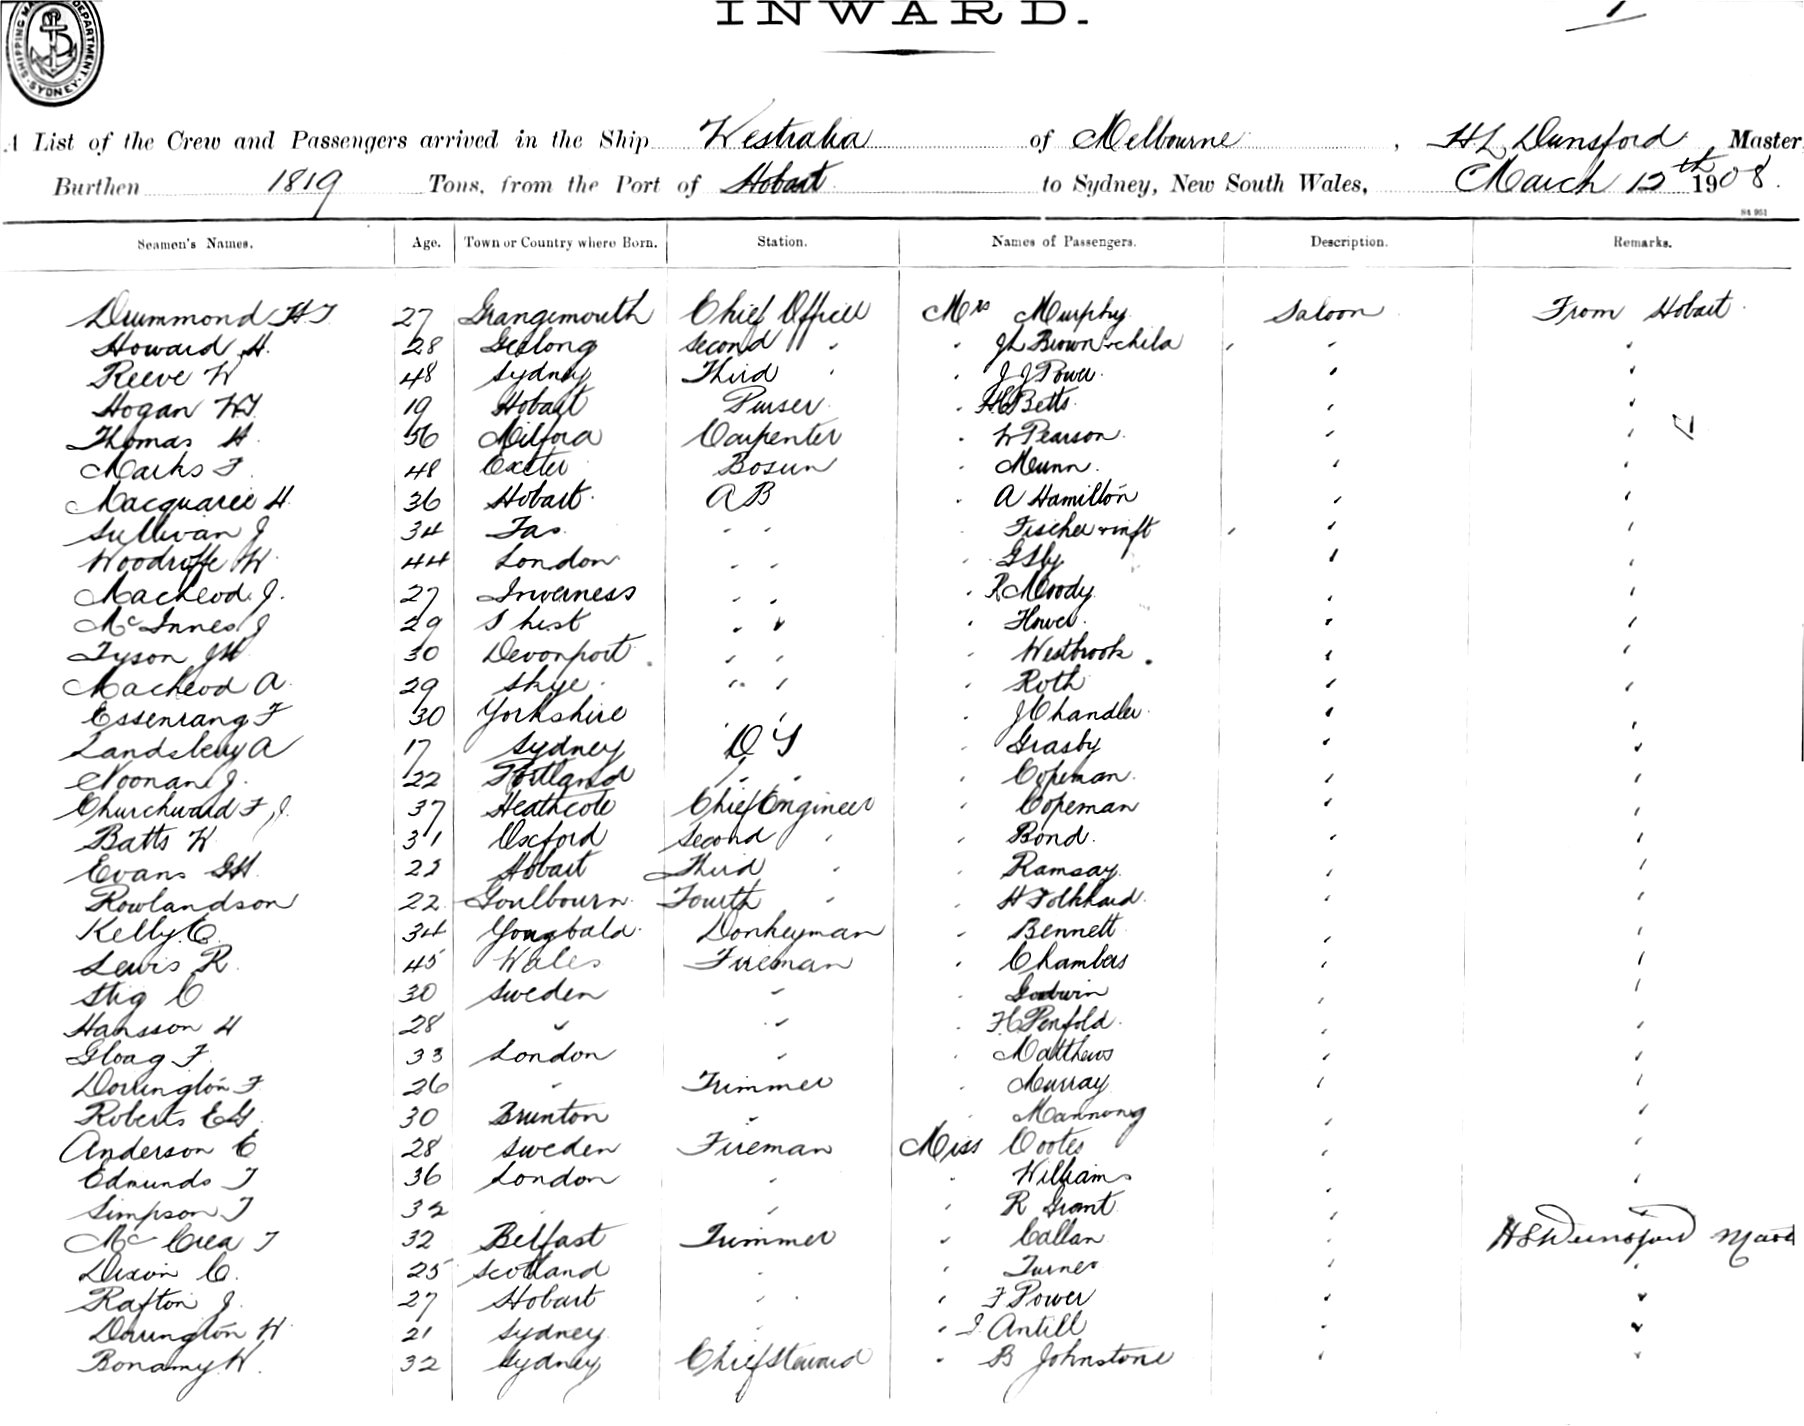 INWARD.
SHIPPING MASTER'S DEPARTMENT. SYDNEY
A List of the Crew and Passengers arrived in the Ship Westralia of Melbourne, H L Dunsford Master
Burthen 1819 Tons, from the Port of Hobart to Sydney, New South Wales, March 12th 1908.
Seamen's Names. Age. Town or Country where Born. Station. Names of Passengers. Description. Remarks.
Drummond H T 27 Grangemouth Chief Officer Mrs Murphy Saloon From Hobart
Howard H. 28 Geelong Second " " J L Brown & child " " "
Reeve W 48 Sydney Third " " J J Power " "
Hogan W J 19 Hobart Purser " H C Betts " "
Thomas H. 56 Milford Carpenter " W Pearson " "
Marks F 48 Exeter Bosun " Munn " "
Macquarie H. 36 Hobart A B " A Hamilton " "
Sullivan J 34 Tas " " " Fischer & inft " " "
Woodriffe W. 44 London " " " " "
MacLeod J. 27 Inverness " " " R Moody " "
McInnes J 29 " " " Hower " "
Tyson J H 30 Devonport " " " Westbrook " "
MacLeod A 29 Skye " " " Roth " "
Essenrang F 30 Yorkshire " " " J Chandler " "
Landsbery A 17 Sydney O S " Grasby " "
Noonan J. 22 Portland " " " Copeman " "
Churchward F J. 37 Heathcote Chief Engineer " Copeman " "
Batts W 31 Oxford Second " " Bond " "
Evans G H. 22 Hobart Third " " Ramsay " "
Rowlandson 22 Goulbourn Fourth " " H Folkhard " "
Kelly C. 34 Donkeyman " Bennett " "
Lewis R. 45 Wales Fireman " Chambers " "
Stig C 30 Sweden " " Godwin " "
Hansson H 28 " " " H C Penfold " "
Gloag F. 33 London " " Matthews " "
Dorrington F 26 " Trimmer " Murray " "
Roberts E G. 30 Brunton " " Mannong " "
Anderson E 28 Sweden Fireman Miss Cootes " "
Edmunds T 36 London " " Williams " "
Simpson T 32 " " " R Grant " "
McCrea T 32 Belfast Trimmer " Callan " H L Dunsford Master
Dixon C. 25 Scotland " " Turner " "
Rafton J. 27 Hobart " " " F Power " "
Dorrington W. 21 Sydney " " I Antill " "
Bonamy W. 32 Sydney Chief Steward " B Johnstone " "